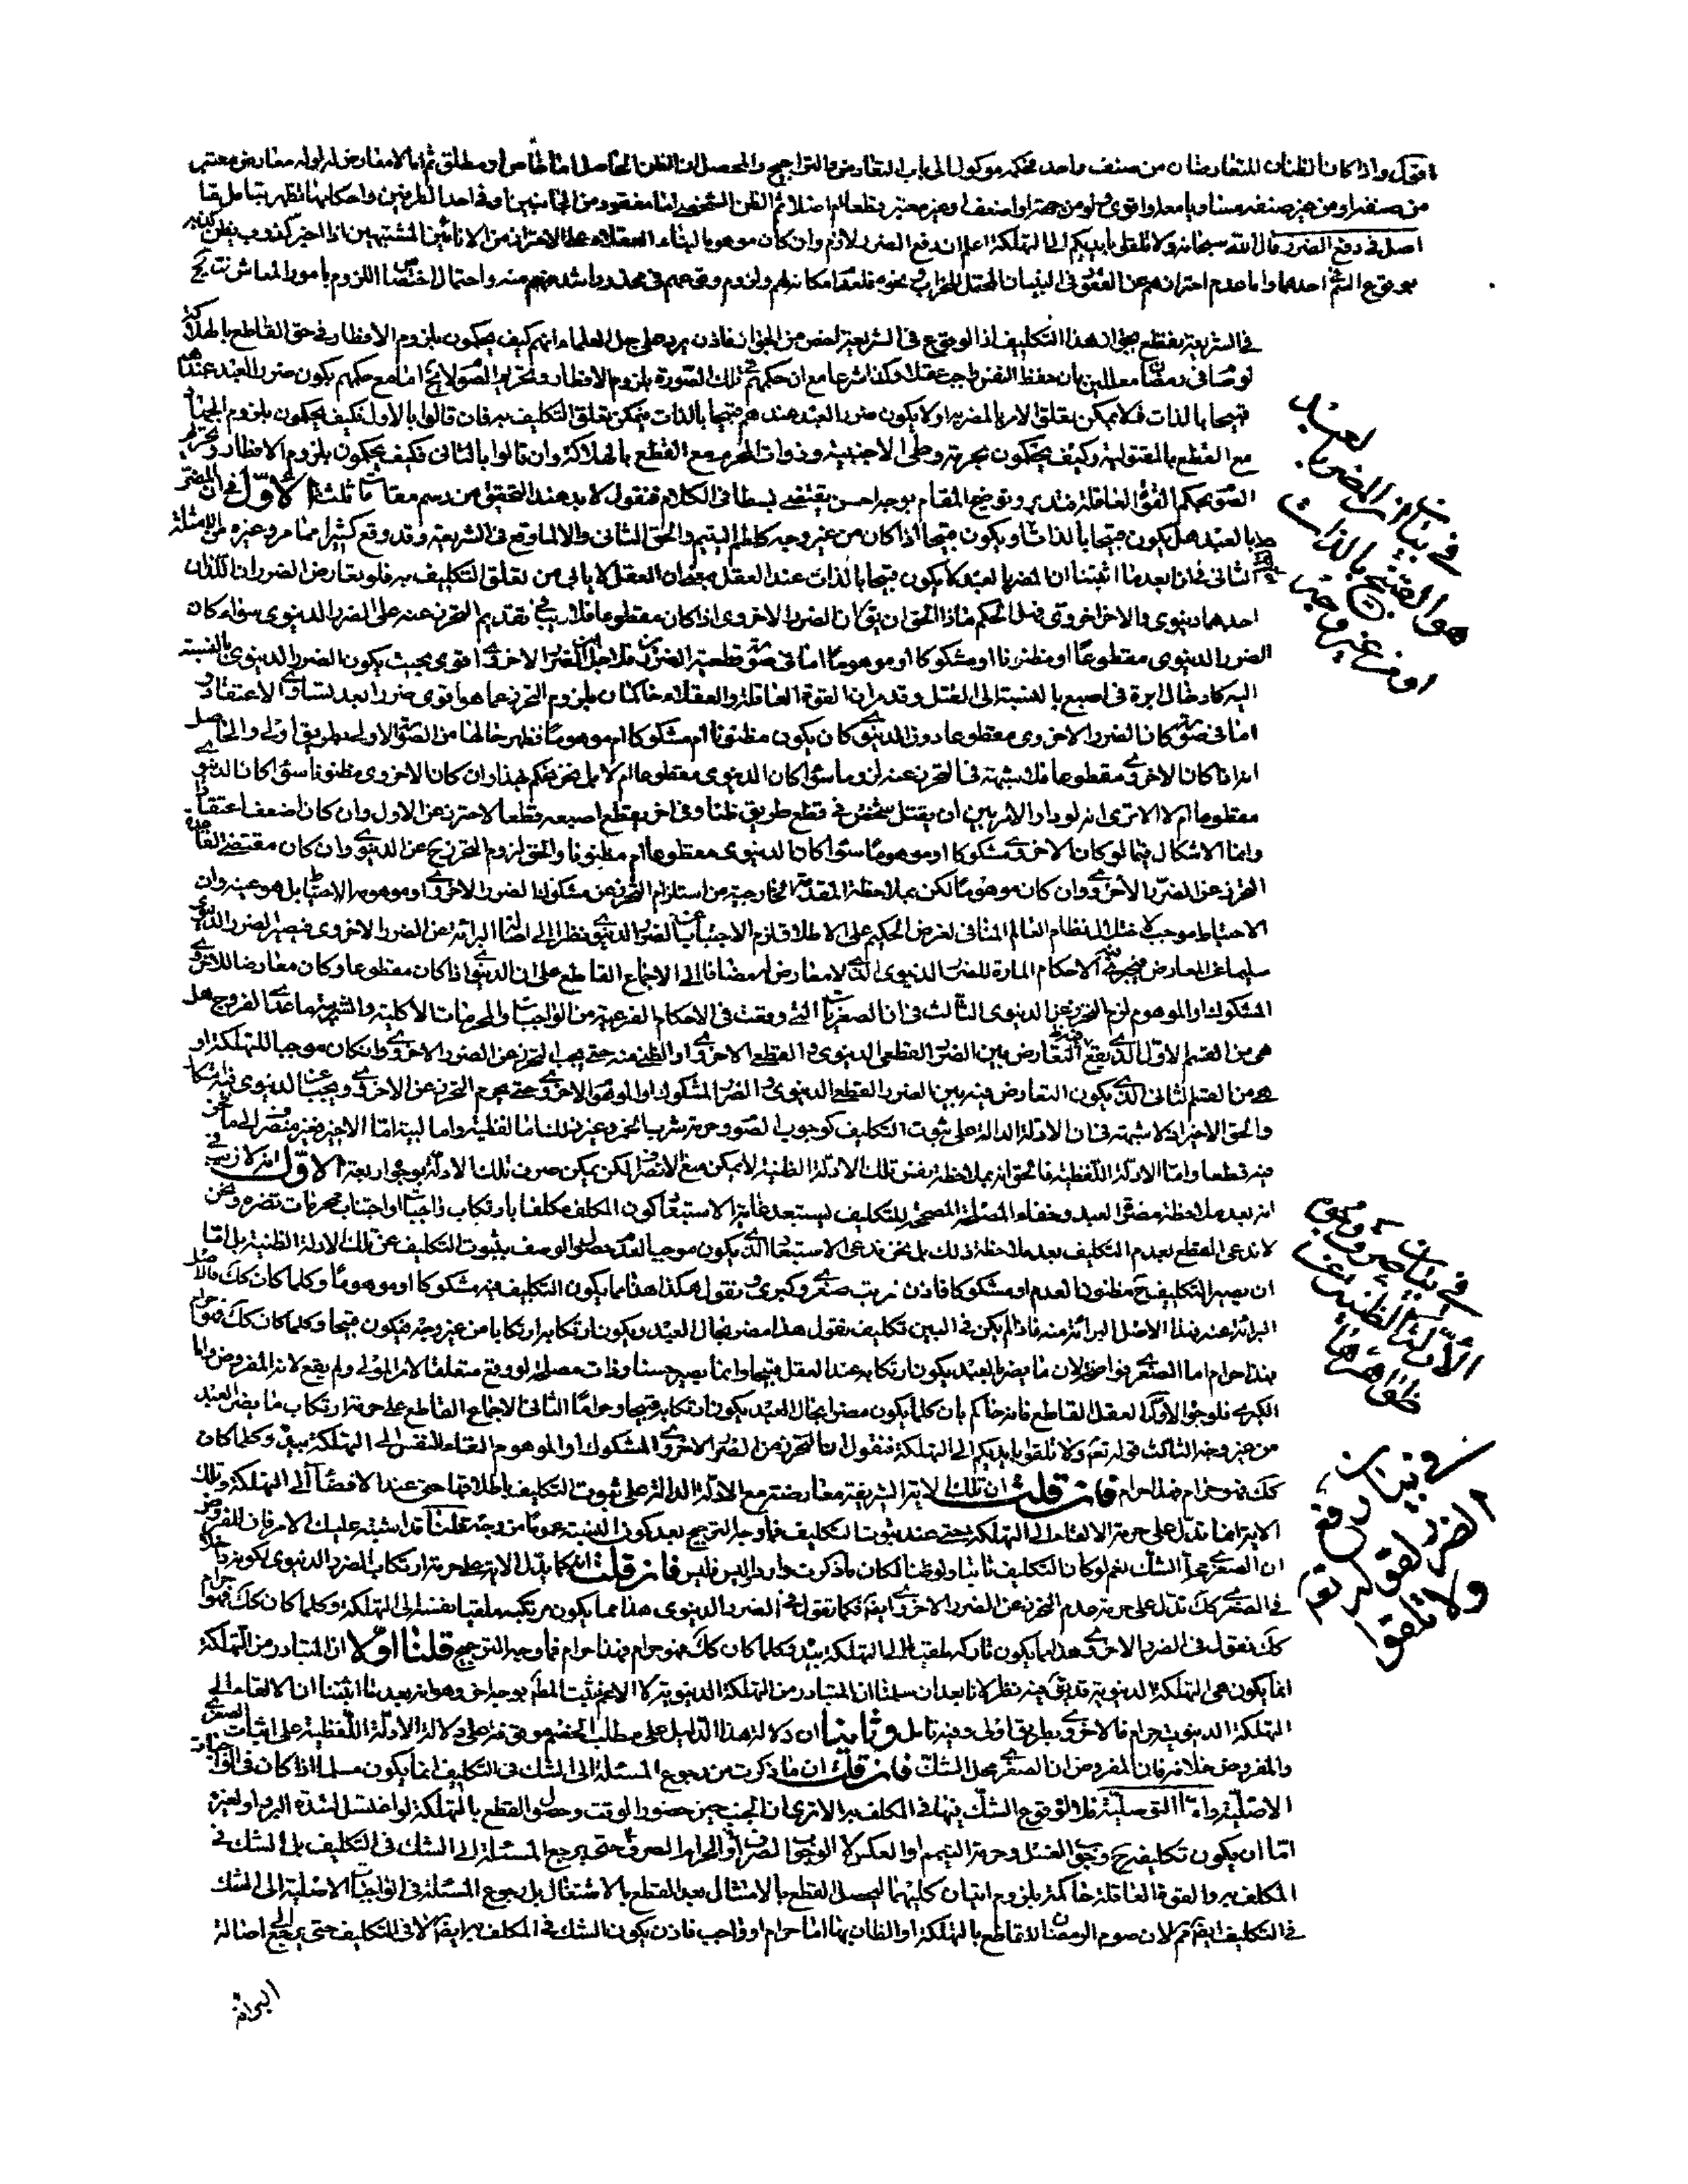 اقول واذا كان الظنان المتعارضان من صنف واحد فحكمه موكول الى باب التعارض والتراجيح والمحصل ان الظن الحاصل اما خاص او مطلق ثم اما لا معارض له او له معارض معتبر
من صنفه او من غير صنفه مساويا معه او اقوى او اضعف او غير معتبر
اصل فى دفع الضرر قال الله سبحانه ولا تلقوا بايديكم الى التهلكة اعلم ان دفع الضرر لازم وان كان موهوما لبناء العقلاء على الاحتراز من الانائين المشتبهين اذا اخبر كذوب
بوقوع السم فى احدهما واما عدم احترازهم عن الفوق فى البنيان المحتمل للخراب ونحوه فلعدم امكانه لهم ولزوم وقوعهم فى محذور اشد منه واحتمال اختصاص اللزوم بامور المعاش
فى الشريعة فنقطع بجواز هذا التكليف اذ الوقوع فى الشريعة اخص من الجواز فاذن يرد على جل العلماء انهم كيف يحكمون بلزوم الافطار فى حق القاطع بالهلاكة
لو صام فى رمضان معللين بان حفظ النفس واجب عقلا وكذا شرعا مع ان حكمهم فى تلك الصورة بلزوم الافطار وتحريم الصوم لا يخ اما مع حكمهم بكون ضرر العبد عندهم
قبيحا بالذات فلا يمكن تعلق الامر بالمضر به او لا يكون ضرر العبد عندهم قبيحا بالذات فيمكن تعلق التكليف به فان قالوا بالاول فكيف يحكمون بلزوم الجهاد
مع القطع بالمقتولية وكيف يحكمون بحرمة وطى الاجنبية وذوات المحرم مع القطع بالهلاكة وان قالوا بالثانى فكيف يحكمون بلزوم الافطار وتحريم
الصوم بحكم القوة العاقلة فتدبر وتوضيح المقام بوجه احسن يقتضى بسطا فى الكلام فنقول لا بد عند التحقيق من رسم مقامات ثلثة الاول فى ان المضر
بالعبد هل يكون قبيحا بالذات او يكون قبيحا اذا كان من غير وجه كلطم اليتيم والحق الثانى والا لما وقع فى الشريعة وقد وقع كثيرا مما مر وغيره من الامثلة
الثانى فى ان بعد ما اثبتنا ان المضر بالعبد لا يكون قبيحا بالذات عند العقل فان العقل لا يابى من تعلق التكليف به فلو تعارض الضرران اللذان
احدهما دنيوى والاخر اخروى فهل الحكم ماذا الحق ان يق ان الضرر الاخروى اذا كان مقطوعا فلا ريب فى تقديم التحرز عنه على الضرر الدنيوى سواء كان
الضرر الدنيوى مقطوعا او مظنونا او مشكوكا او موهوما اما فى صورة قطعية الضررين فلاجل ان الضرر الاخروى اقوى بحيث يكون الضرر الدنيوى بالنسبة
اليه كادخال ابرة فى اصبع بالنسبة الى القتل وقد مر ان القوة العاقلة والعقلاء حاكمان بلزوم التحرز عما هو اقوى ضررا بعد تساوى الاعتقاد
اما فى صورة كان الضرر الاخروى مقطوعا دون الدنيوى كان يكون مظنونا ام مشكوكا ام موهوما فظهر حالها من الصورة الاولى بطريق اولى والحاصل
انه اذا كان الاخروى مقطوعا فلا شبهة فى التحرز عنه لزوما سواء كان الدنيوى مقطوعا ام لا بل نحن نحكم بهذا وان كان الاخروى مظنونا سواء كان الدنيوى
مقطوعا ام لا الا ترى انه لو دار الامر بين ان يقتل شخص فى قطع طريق ظنا وفى اخر يقطع اصبعه قطعا لاحترز عن الاول وان كان اضعف اعتقادا
وانما الاشكال فيما لو كان الاخروى مشكوكا او موهوما سواء كان الدنيوى مقطوعا ام مظنونا والحق لزوم التحرز ح عن الدنيوى وان كان مقتضى القاعدة
التحرز عن الضرر الاخروى وان كان موهوما لكن بملاحظة المقدمة الخارجية من استلزام التحرز عن مشكوك الضرر الاخروى او موهومه الاحتياط بل هو عينه وان
الاحتياط موجب لاختلال نظام العالم المنافى لغرض الحكيم على الاطلاق لزم الاجتناب عن الضرر الدنيوى نظرا الى اصالة البرائة عن الضرر الاخروى فيصير الضرر الدنيوى
سليما عن المعارض الاحكام المارة للضرر الدنيوى الذى لا معارض له مضافا الى الاجماع القاطع على ان الدنيوى اذا كان مقطوعا وكان معارضا للاخروى
المشكوك او الموهوم لزم التحرز عن الدنيوى الثالث فى ان الصغريات التى وقعت فى الاحكام الفرعية من الواجبات والمحرمات الاكلية والشربية ما عدا الفروج هل
هى من القسم الاول الذى يقع فيه التعارض بين الضرر القطعى الدنيوى و القطعى الاخروى او الظنى منه حتى يجب التحرز عن الضرر الاخروى وان كان موجبا للتهلكة او
هى من القسم الثانى الذى يكون التعارض فيه بين الضرر القطعى الدنيوى و الضرر المشكوك او الموهوم الاخروى حتى يحرم التحرز عن الاخروى ويجب عن الدنيوى
والحق الاخير اذ لا شبهة فى ان الادلة الدالة على ثبوت التكليف كوجوب الصوم وحرمة شرب الخمر وغير ذلك اما لفظية واما لبية اما الاخير فغير منصرف الى ما نحن
فيه قطعا واما الادلة اللفظية فالحق انه بملاحظة نفس تلك الادلة الظنية لا يمكن منع الانصراف لكن يمكن صرف تلك الادلة بوجوه اربعة الاول انه لا ريب فى
انه بعد ملاحظة مضرة العبد وخفاء المصلحة المصححة للتكليف يستبعد غاية الاستبعاد كون المكلف مكلفا بارتكاب واجبات او اجتناب محرمات تضره ونحن
لا ندعى القطع بعدم التكليف بعد ملاحظة ذلك بل نحن ندعى الاستبعاد الذى يكون موجبا لعدم حصول الوصف بثبوت التكليف عن تلك الادلة الظنية بل اما
ان يصير التكليف ح مظنون العدم او مشكوكا فاذن نرتب صغرى وكبرى ونقول هكذا هذا مما يكون التكليف فيه مشكوكا او موهوما وكلما كان كك فالاصل
البرائة عنه فهذا الاصل البرائة منه فاذا لم يكن فى البين تكليف نقول هذا مضر بحال العبد ويكون ارتكابه ارتكابا من غير وجه فيكون قبيحا وكلما كان كك فهو حرام
فهذا حرام اما الصغرى فواضح لان ما يضر بالعبد يكون ارتكابه عند العقل قبيحا وانما يصير حسنا وذات مصلحة لو وقع متعلقا لامر المولى ولم يقع لانه المفروض واما
الكبرى فلوجوه الاول العقل القاطع فانه حاكم بان كلما يكون مضرا بحال العبد يكون ارتكابه قبيحا وحراما الثانى الاجماع القاطع على حرمة ارتكاب ما يضر العبد
من غير وجه الثالث قوله تعم ولا تلقوا بايديكم الى التهلكة فنقول ان التحرز من الضرر الاخروى المشكوك او الموهوم القاء النفس الى التهلكة بيده وكلما كان
كك فهو حرام فهذا حرام فان قلت ان تلك الاية الشريفة معارضة مع الادلة الدالة على ثبوت التكليف باطلاقها حتى عند الافضاء الى التهلكة وتلك
الاية انما تدل على حرمة الالقاء الى التهلكة حتى عند ثبوت التكليف فما وجه الترجيح بعد كون النسبة عموما من وجه قلنا قد اشتبه عليك الامر فان المفروض
ان الصغرى محل الشك نعم لو كان التكليف ثابتا ولو ظنا لكان ما ذكرت واردا وليس فليس فان قلت انه كما يدل الاية على حرمة ارتكاب الضرر الدنيوى لكونه داخلا
فى الصغرى كك تدل على حرمة عدم التحرز عن الضرر الاخروى ايضا فكما تقول فى الضرر الدنيوى هذا مما يكون مرتكبه ملقيا نفسه الى التهلكة وكلما كان كك فهو حرام
كك نقول فى الضرر الاخروى هذا مما يكون تاركه ملقيا الى التهلكة بيده وكلما كان كك فهو حرام فهذا حرام فما وجه الترجيح قلنا اولا ان المتبادر من التهلكة
انما يكون هى التهلكة الدنيوية قد يق فيه نظر لانا بعد ان سلمنا ان المتبادر من التهلكة الدنيوية لا الاعم نثبت المطلوب بوجه اخر وهو انه بعد ما اثبتنا ان الالقاء الى
التهلكة الدنيوية حرام فالاخروى بطريق اولى وفيه تامل وثانيا ان دلالة هذا الدليل على مطلب الخصم موقوفة على دلالة الادلة اللفظية على اثبات الصغرى
والمفروض خلافه فان المفروض ان الصغرى محل الشك فان قلت ان ما ذكرت من رجوع المسئلة الى الشك فى التكليف انما يكون مسلما اذا كان فى الواجبات
الاصلية واما التوصلية فلا لوقوع الشك فيها فى المكلف به الا ترى ان الجنب حين حضور الوقت وحصول القطع بالتهلكة لو اغتسل لشدة البرد او لغيره
اما ان يكون تكليفه ح وجوب الغسل وحرمة التيمم او العكس لا الوجوب الصرف او الحرام الصرف حتى يرجع المسئلة الى الشك فى التكليف بل الشك فى
المكلف به والقوة العاقلة حاكمة بلزوم اتيان كليهما ليحصل القطع بالامتثال بعد القطع بالاشتغال بل رجوع المسئلة فى الواجبات الاصلية الى الشك
فى التكليف ايضا مم لان صوم الرمضان للقاطع بالتهلكة او الظان بها اما حرام او واجب فاذن يكون الشك فى المكلف به ايضا لا فى التكليف حتى يرجع الى اصالة
البرائة
فى بيان ان المضر بالعبد
هو القبيح بالذات
او من غير وجه
فى بيان صرف
الأدلة الظنية عن
ظواهرها
فى بيان دفع
الضرر لقوله تعم
ولا تلقوا